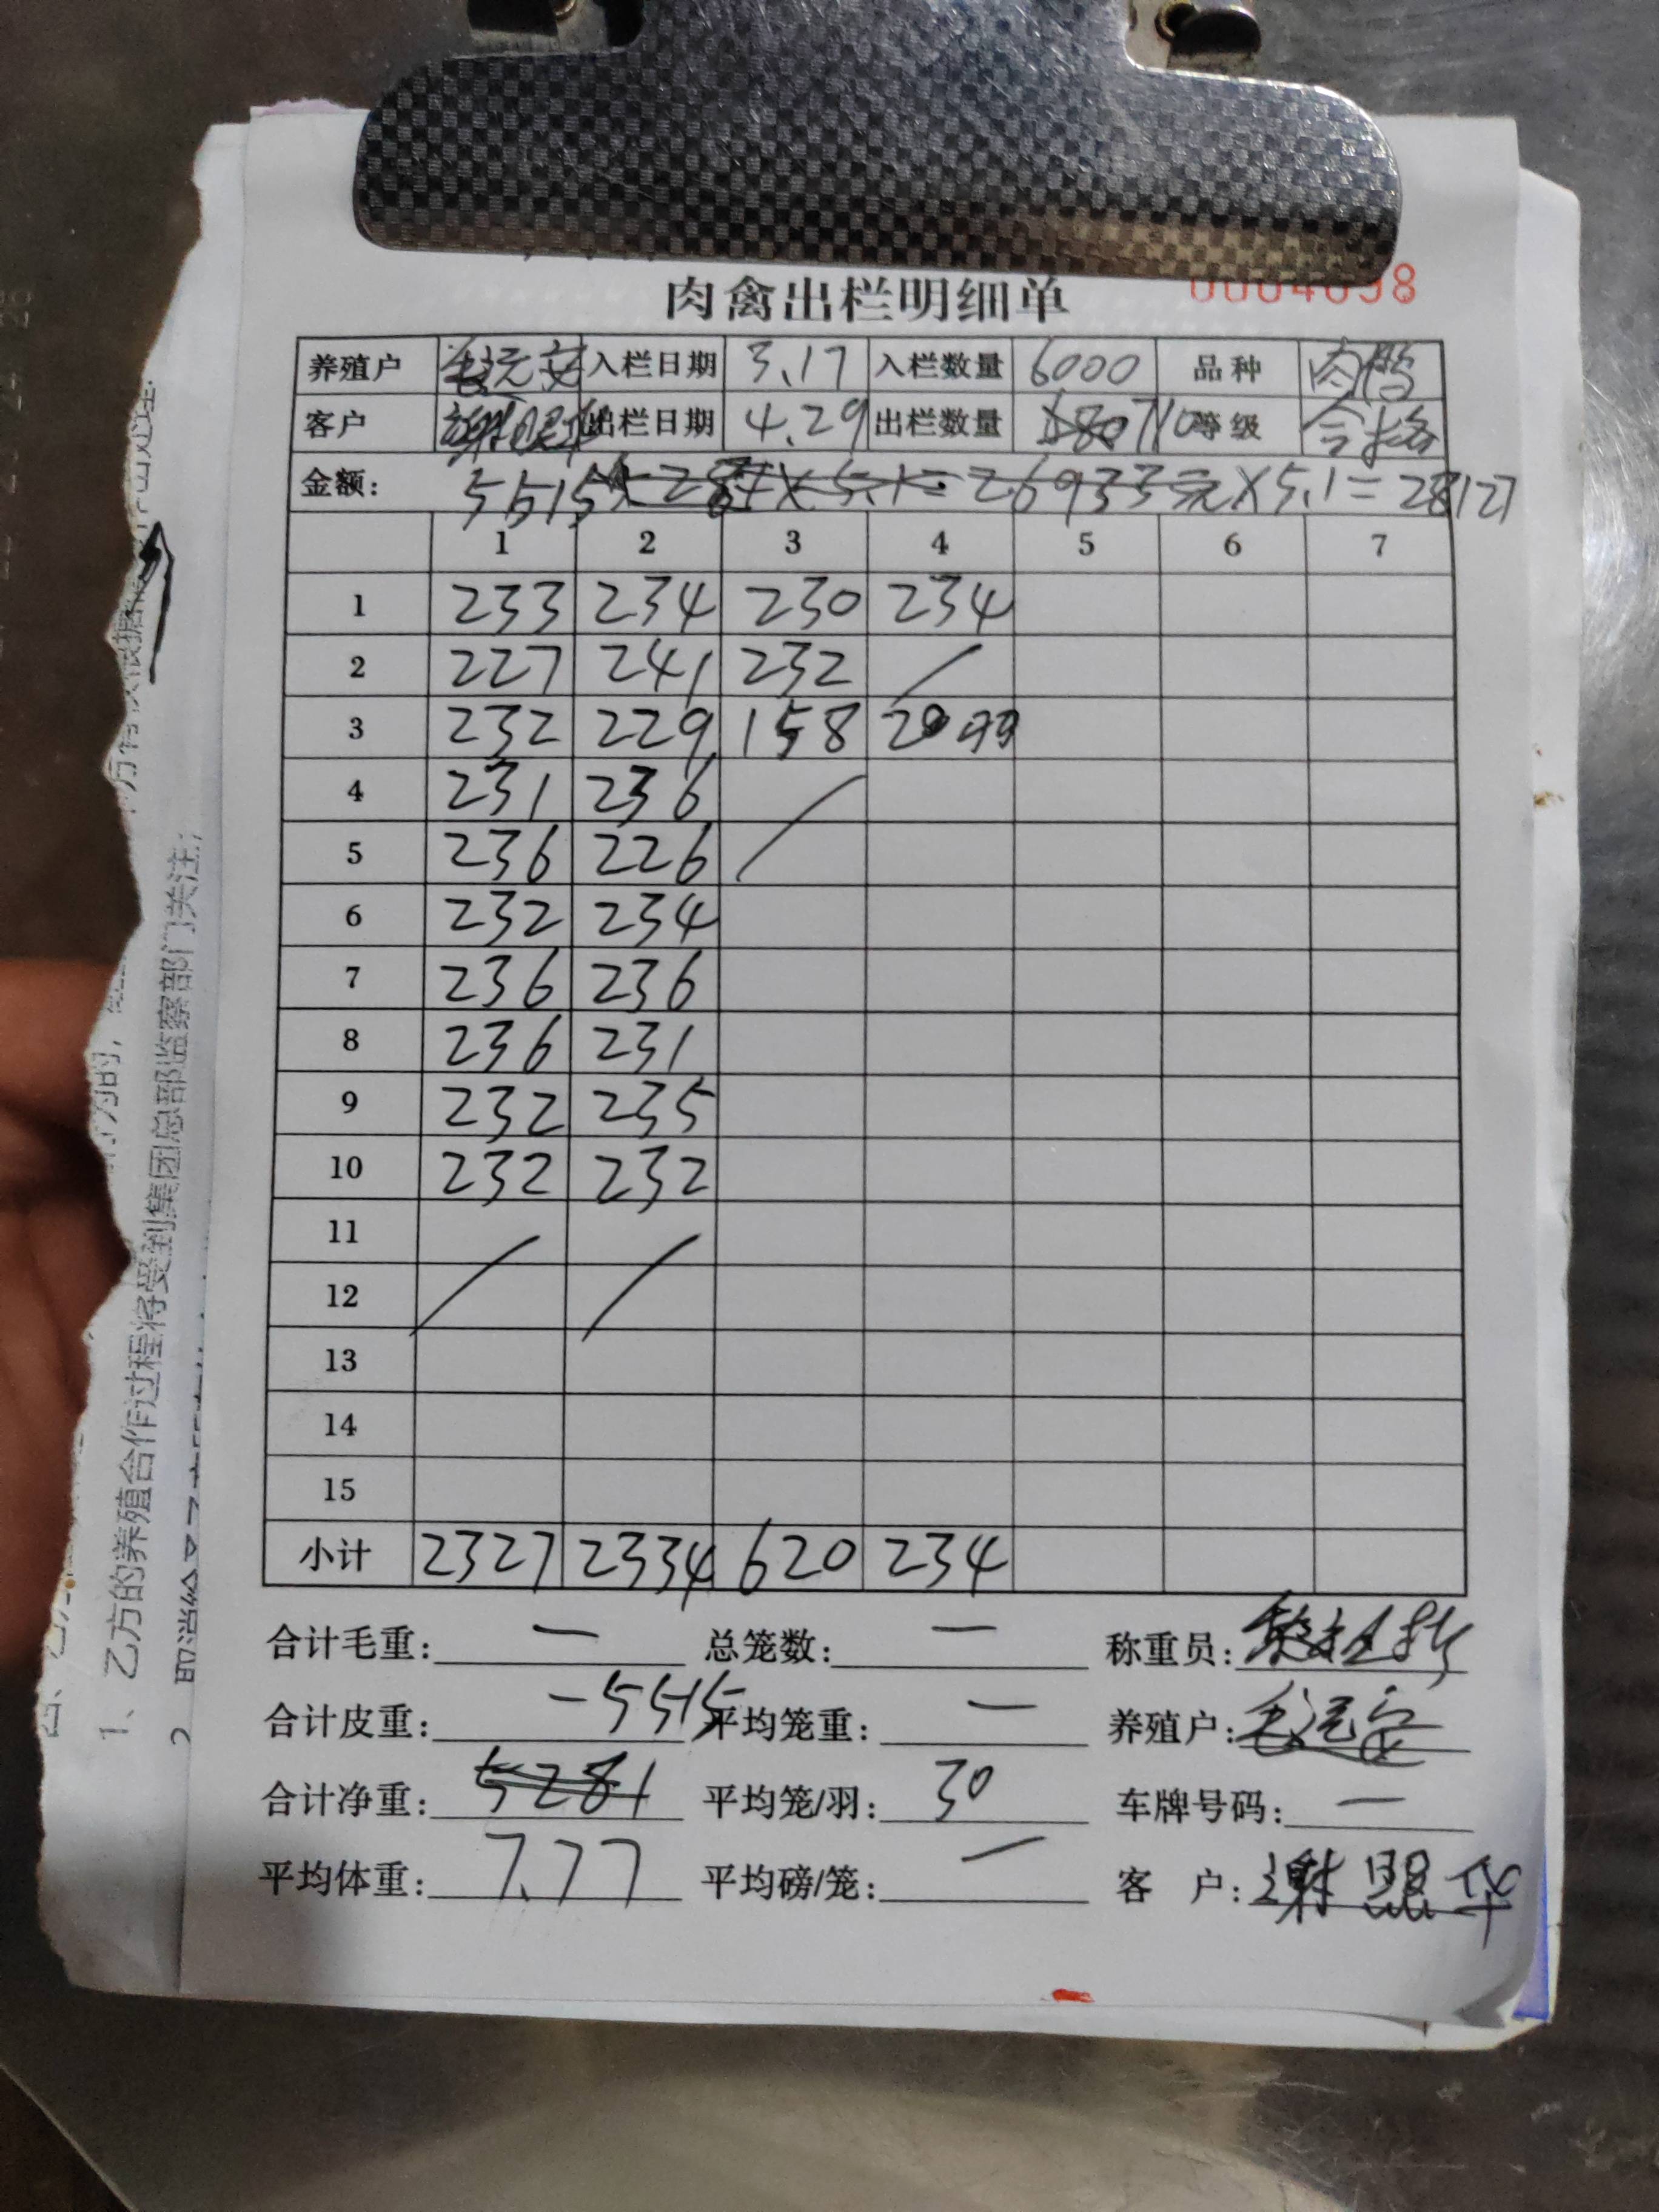 肉禽出栏明细单
养殖户 入栏日期 3.17 入栏数量 6000 品种 肉鸭
客户 出栏日期 4.29 出栏数量 710 等级 合格
金额: 5515 ×5.1=26933元×5.1=28127
1 2 3 4 5 6 7
1 233 234 230 234
2 227 241 232
3 232 229 158
4 231 236
5 236 226
6 232 234
7 236 236
8 236 231
9 232 235
10 232 232
11
12
13
14
15
小计 2327 2334 620 234
合计毛重: — 总笼数: — 称重员:
合计皮重: -5515 平均笼重: — 养殖户:
合计净重: 5281 平均笼/羽: 30 车牌号码: —
平均体重: 7.77 平均磅/笼: — 客 户: 谢盟华
1、乙方的养殖合作过程将受到集团总部监察部门关注;